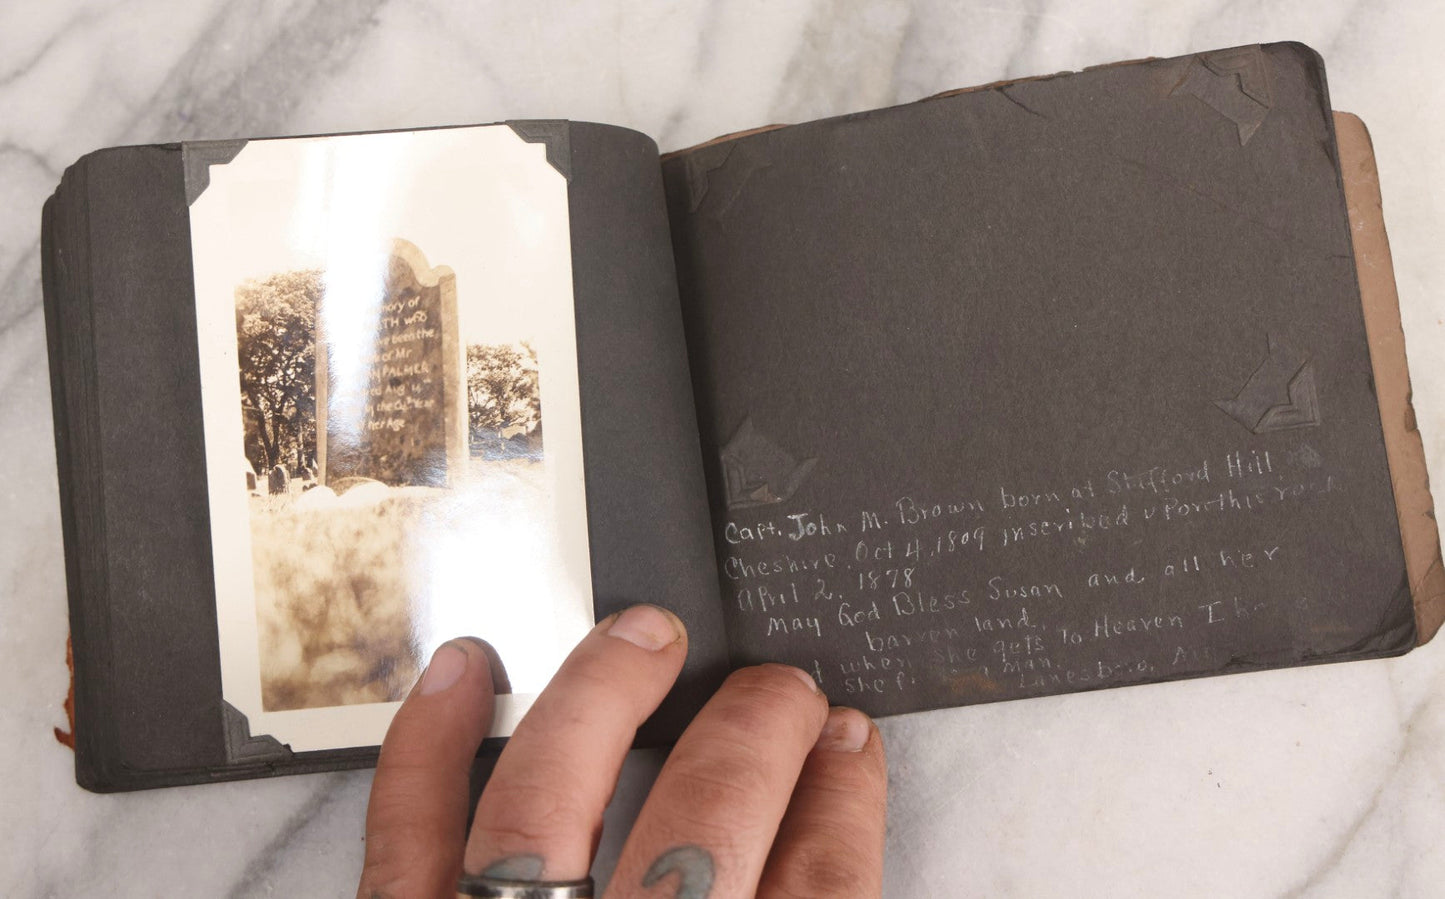 mory of
TH who
ve been the
of Mr
PALMER
Aug
the
her Age
Capt. John M. Brown born at Stafford Hill
Cheshire, Oct 4, 1809 inscribed upon this rock
April 2, 1878
May God Bless Susan and all her
barren land,
when she gets To Heaven I
she man.
Lanesboro,